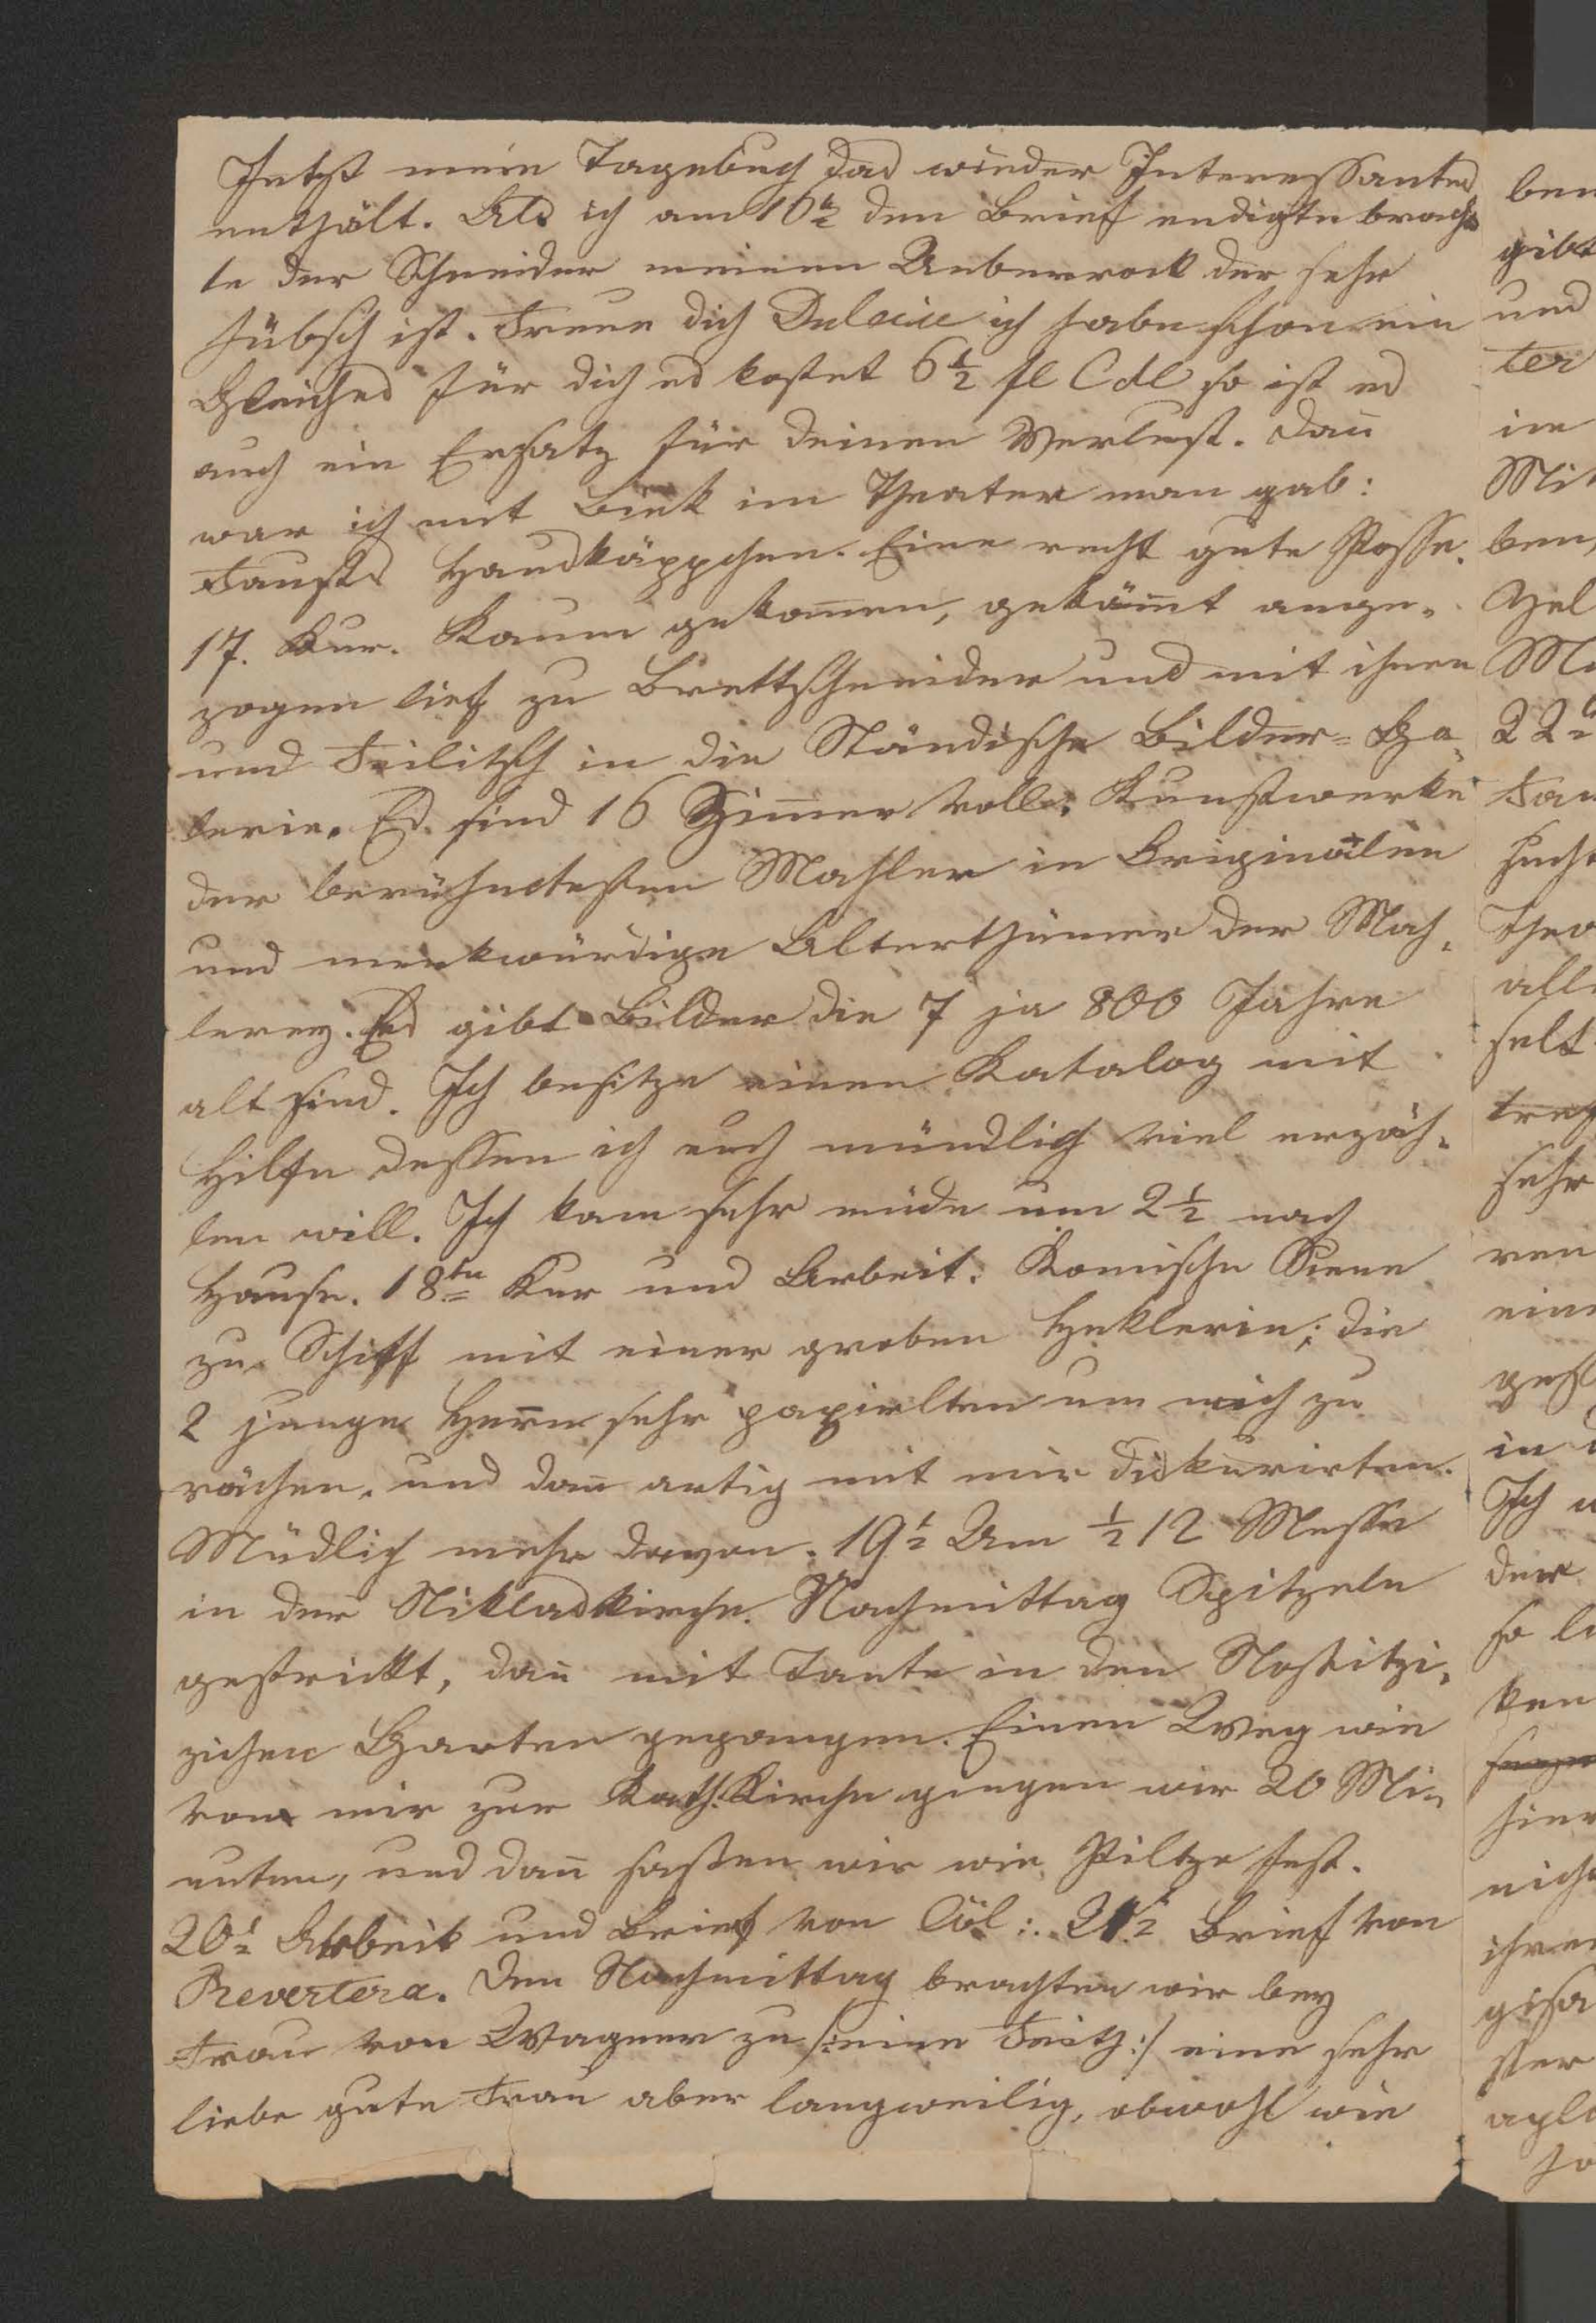 Jetzt mein Tagebuch das wieder Interessantes
enthält. Als ich am 16t den Brief endigte brach-
te der Schneider meinen Ueberrock der sehr
hübsch ist. Freue dich ich habe schon ein
Gleiches für dich es kostet 6 1/2 fl so ist es
auch ein Ersatz für deinen Verlust. Dañ
war ich mit im Theater man gab:
Fausts Hauskäppchen. Eine recht gute Posse.
17. Kur. Kaum gekom̄en, gekäm̄t ange-
zogen lief zu Brettschneider und mit ihnen
und Feilitsch in die Ständische Bilder-Ga-
lerie. Es sind 16 Zim̄er voll: Kunstwerke
der berühmtesten Mahler in Originalen
und merkwürdige Alterthümer der Mah-
lerey. Es gibt Bilder die 7 ja 800 Jahre
alt sind. Ich besitze einen Katalog mit
Hilfe dessen ich euch mündlich viel erzäh-
len will. Ich kam sehr müde um 2 1/2 nach
Hause. 18te Kur und Arbeit: Komische Scene
zu Schiff mit einer groben Höklerin; die
2 junge Herrn sehr um mich zu
rächen, und dañ artig mit mir diskurirten.
Müdlich mehr davon. 19t Um 1/2 12 Messe
in der Niklaskirche. Nachmittag Spitzeln
gestrickt, dañ mit Tante in den Nostitzi-
zichen Garten gegangen. Einen Weg wie
von mir zur Kath. Kirche giengen wir 20 Mi-
nuten, und dañ saßen wir wie Piltze fest.
20t Arbeit und Brief von Cöl: 21t Brief von
Revertera. Den Nachmittag brachten wir bey
Frau von Wagner zu /:eine :/ eine sehr
liebe gute Frau aber langweilig, obwohl wie
ben
gibt
und
ter
in
Mit
ben,
22t
alle
selt
sehr
ren
ein
in
Ich
der
so
ken
hier
nicht
ihren